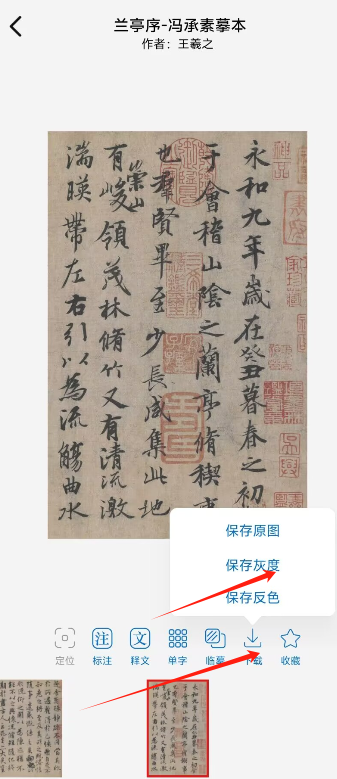 兰亭序-冯承素摹本
作者：王羲之
永和九年歲在癸丑暮春之初
于會稽山陰之蘭亭脩稧事
也羣賢畢至少長咸集此地
有崇山峻領茂林脩竹又有清流激
湍暎帶左右引以為流觴曲水
保存原图
保存灰度
保存反色
注
文
定位
标注
释文
单字
临摹
下载
收藏